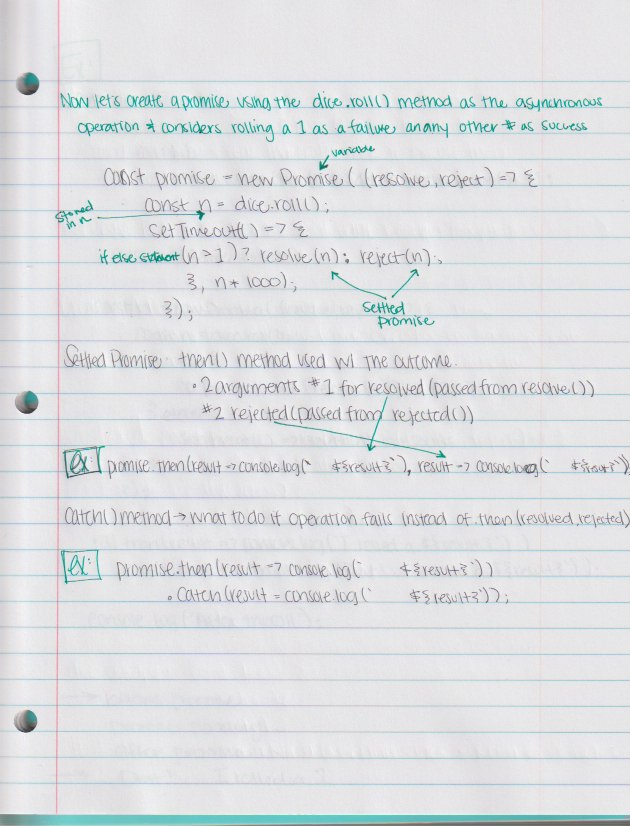 Now let's create a promise using the dice.roll() method as the asynchronous
operation & considers rolling a 1 as a failure an any other # as success
variable
const promise = new Promise( (resolve, reject) => {
Stored in n
const n = dice.roll();
setTimeout(() => {
if else statement (n > 1) ? resolve(n) : reject(n);
}, n * 1000);
});
Settled promise
Settled Promise then() method used w/ the outcome.
• 2 arguments #1 for resolved (passed from resolve())
#2 rejected (passed from rejected())
ex: promise.then(result => console.log(` ${result}`), result => console.log(` ${result}`));
Catch() method → what to do if operation fails instead of .then(resolved, rejected)
ex: promise.then(result => console.log(` ${result}`))
.catch(result = console.log(` ${result}`));